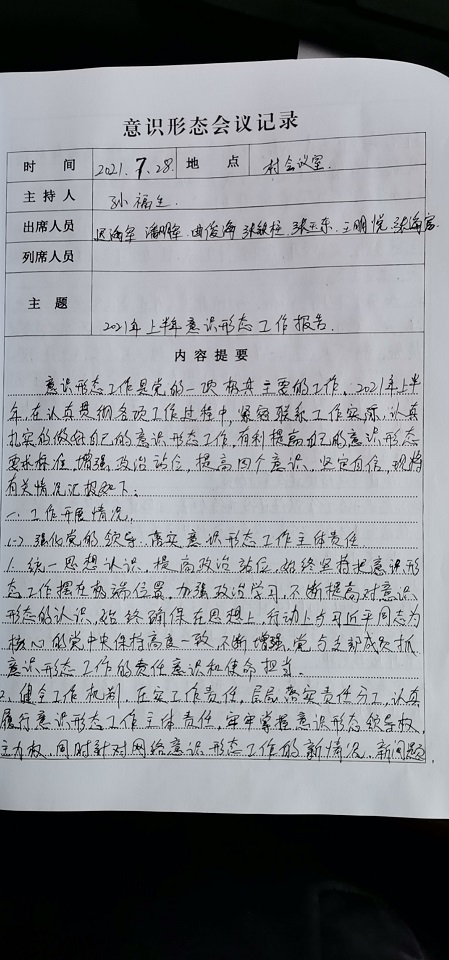 意识形态会议记录
时 间 2021.7.28. 地 点 村会议室.
主持人 孙福生.
出席人员 潘明军 曲俊海 张玉东. 王明悦.
列席人员
主 题 2021年上半年意识形态工作报告.
内容提要
意识形态工作是党的一项极其主要的工作. 2021年上半
年,在认真贯彻各项工作过程中,紧密联系工作实际,认真
扎实的做好自己的意识形态工作,有利提高自己的意识形态
要求标准,增强政治站位,提高四个意识,坚定自信,现将
有关情况汇报如下:
一.工作开展情况.
强化党的领导.落实意识形态工作主体责任
1.统一思想认识,提高政治站位,始终坚持把意识形
态工作摆在 端位置,加强政治学习,不断提高对意识
形态的认识,始终确保在思想上,行动上与习近平同志为
核心的党中央保持高度一致,不断增强党 支部成员抓
意识形态工作的责任意识和使命担当.
2.健全工作机制,在实工作责任,层层落实责任分工,认真
履行意识形态工作主体责任,牢牢掌握意识形态领导权,
主力权,同时针对网络意识形态工作的新情况,新问题